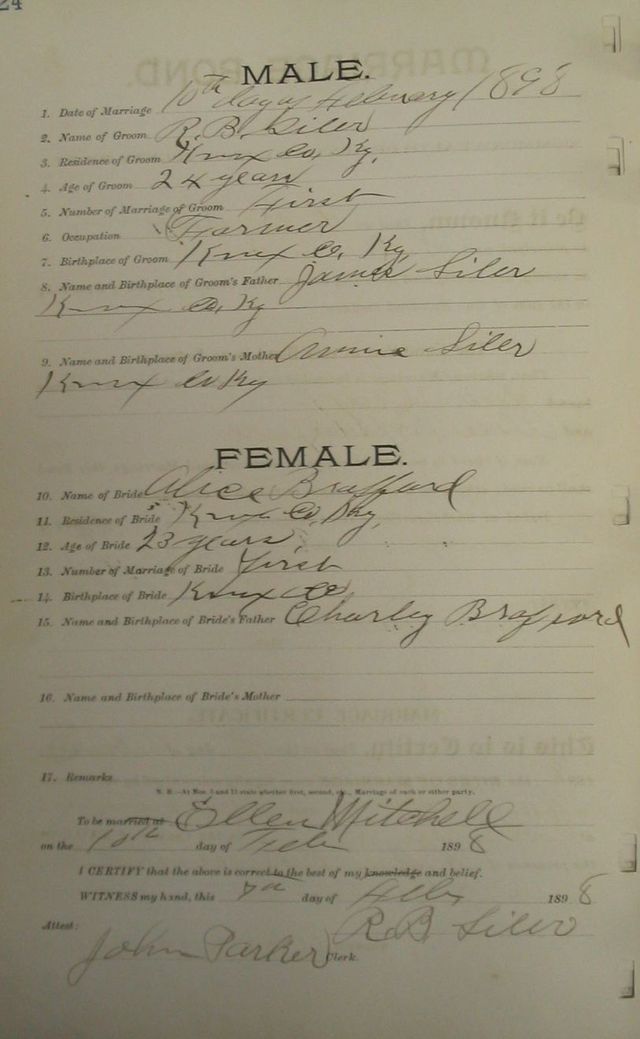 24
MALE.
1. Date of Marriage 10th day of February 1898
2. Name of Groom R. B. Siler
3. Residence of Groom Knox Co, Ky,
4. Age of Groom 24 years
5. Number of Marriage of Groom First
6. Occupation Farmer
7. Birthplace of Groom Knox Co, Ky
8. Name and Birthplace of Groom's Father James Siler
Knox Co, Ky
9. Name and Birthplace of Groom's Mother Annie Siler
Knox Co Ky
FEMALE.
10. Name of Bride Alice Brafford
11. Residence of Bride Knox Co, Ky,
12. Age of Bride 23 years,
13. Number of Marriage of Bride First
14. Birthplace of Bride Knox Co
15. Name and Birthplace of Bride's Father Charley Brafford
16. Name and Birthplace of Bride's Mother
17. Remarks
N. B.—At Nos. 5 and 13 state whether first, second, etc., Marriage of each or either party.
To be married at Ellen Mitchell
on the 10th day of Feb 1898
I CERTIFY that the above is correct to the best of my knowledge and belief.
WITNESS my hand, this day of Feby 1898
R. B. Siler
Attest:
John Parker Clerk.